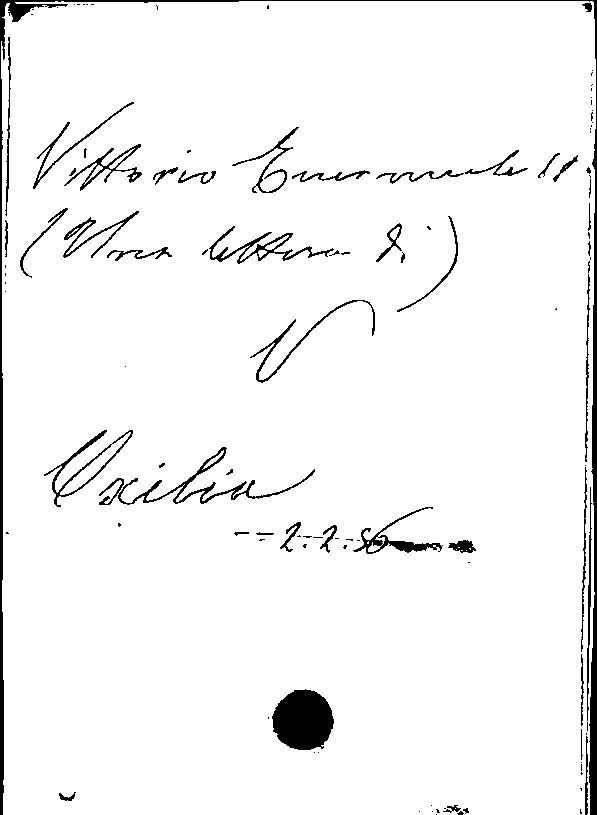 Vittorio Emanuele II
(Una lettera di)
V
Oxilia
-- 2.2.56